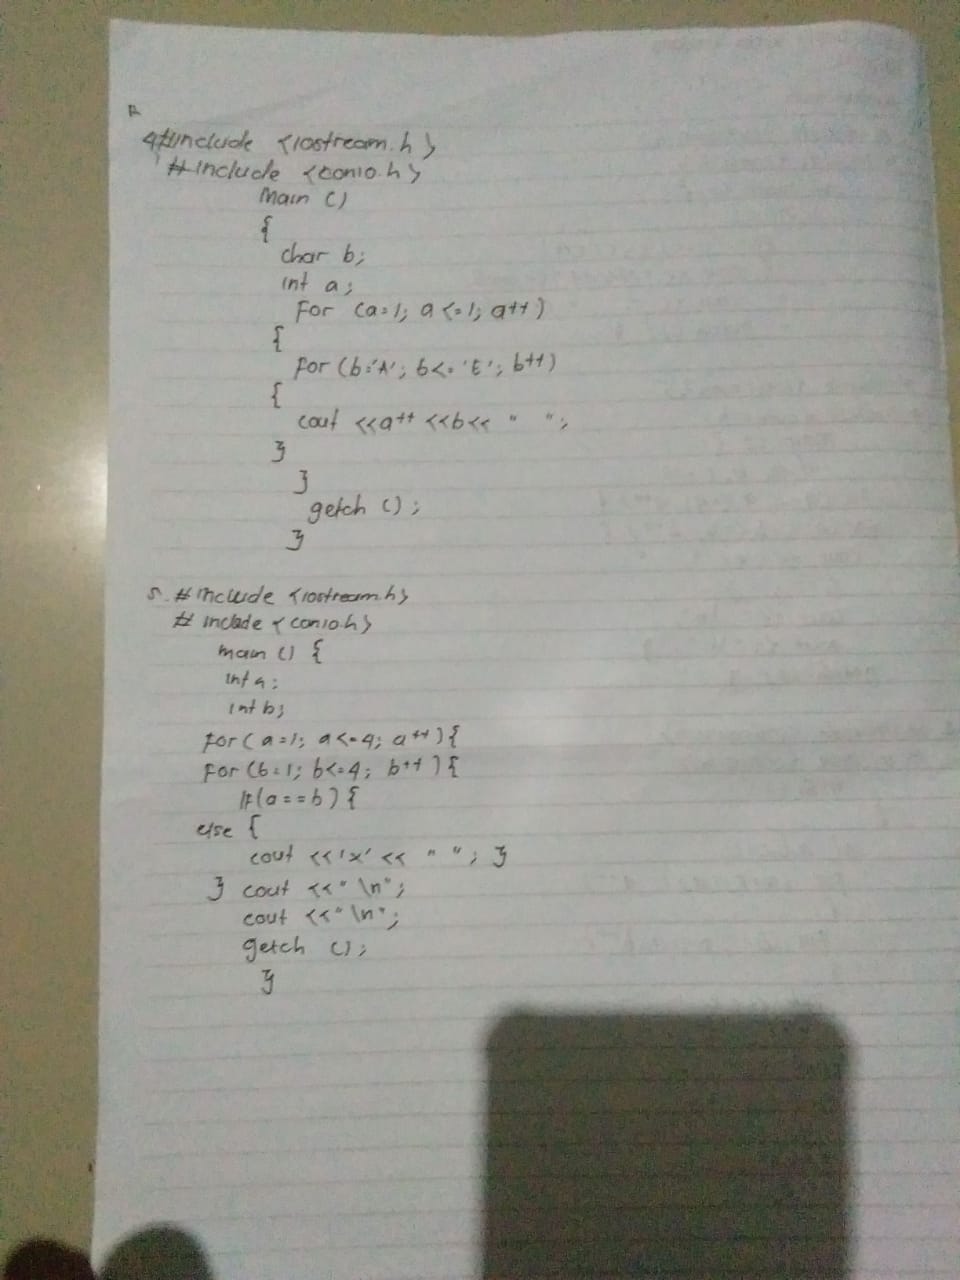 4 #include <iostream.h>
#include <conio.h>
main ()
{
char b;
int a;
For (a=1; a<=1; a++)
{
For (b='A'; b<='E'; b++)
{
cout <<a++ <<b<< " ";
}
}
getch ();
}
5. #include <iostream.h>
# include <conio.h>
main () {
int a;
int b;
For (a=1; a<=4; a++) {
For (b=1; b<=4; b++) {
If (a==b) {
else {
cout <<'x' << " "; }
} cout <<" \n";
cout <<" \n";
getch ();
}